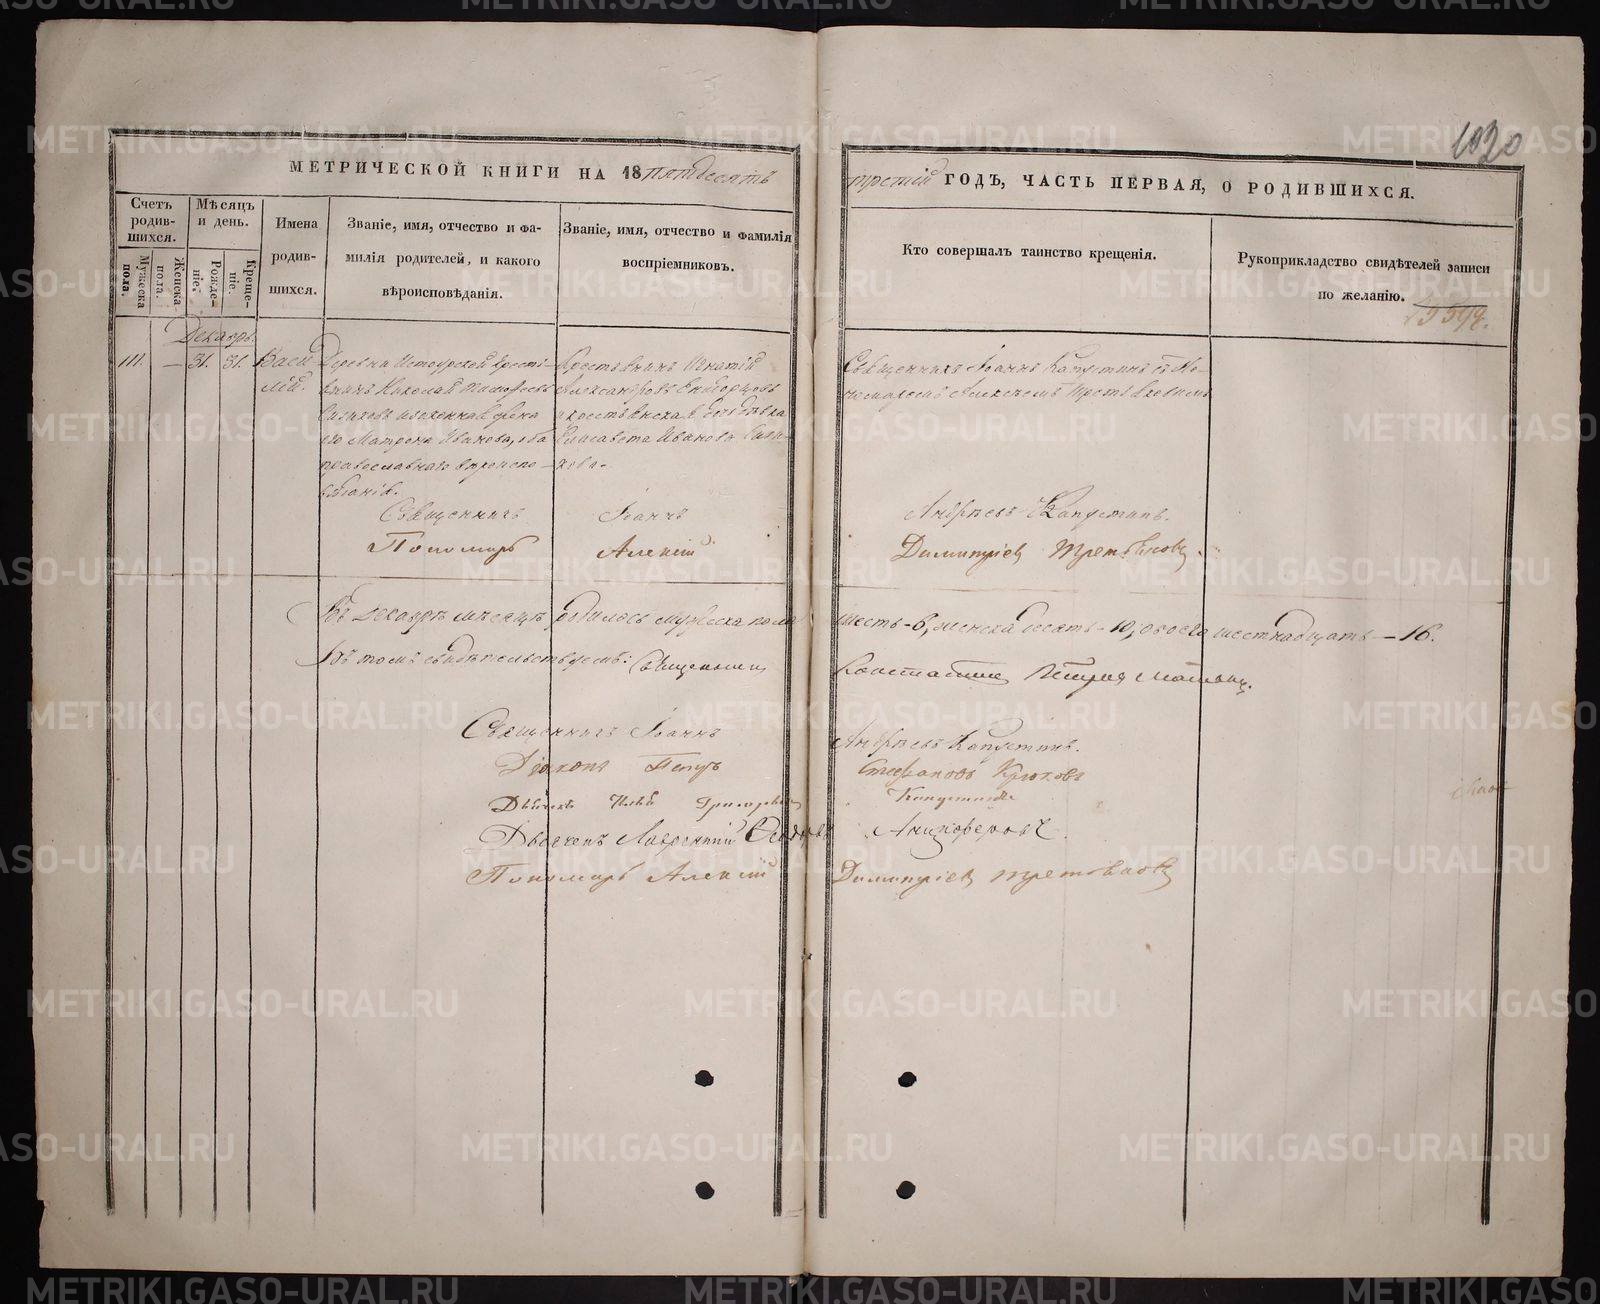 1020
МЕТРИЧЕСКОЙ КНИГИ НА 18 пятдесятъ
третій ГОДЪ, ЧАСТЬ ПЕРВАЯ, О РОДИВШИХСЯ.
Счетъ родив-шихся.
Мужеска пола.
Женска пола.
Мѣсяцъ и день.
Рожде-ніе.
Креще-ніе.
Имена родив-шихся.
Званіе, имя, отчество и фа-
милія родителей, и какого
вѣроисповѣданія.
Званіе, имя, отчество и фамилія
воспріемниковъ.
Кто совершалъ таинство крещенія.
Рукоприкладство свидѣтелей записи
по желанію.
Декабрь.
111. — 31. 31. Васи
лій.
Деревни крестья
нинъ Николай Тимофеевъ
законная жена
его Матрона Иванова, оба
православнаго вѣроиспо-
вѣданія.
Крестьянинъ Игнатій
Александровъ
и крестьянская дѣвка
Елисавета Иванова
Священникъ Іоаннъ Капустинъ съ По-
номаремъ Алексѣемъ Третьяковымъ
Священникъ Іоаннъ Андреевъ Капустинъ.
Пономарь Алексій Димитріевъ Третьяковъ.
Въ Декабрѣ мѣсяцѣ родилось мужеска пола шесть - 6, женска десять - 10, обоего шестнадцать — 16.
Въ томъ свидѣтельствуемъ: Священникъ Константинъ
Священникъ Іоаннъ Андреевъ Капустинъ.
Діаконъ Петръ Стефановъ Крюковъ
Дьячекъ Капустинъ
Дьячекъ Лаврентій Ѳедоровъ Анциферовъ.
Пономарь Алексій Димитріевъ Третьяковъ
METRIKI.GASO-URAL.RU